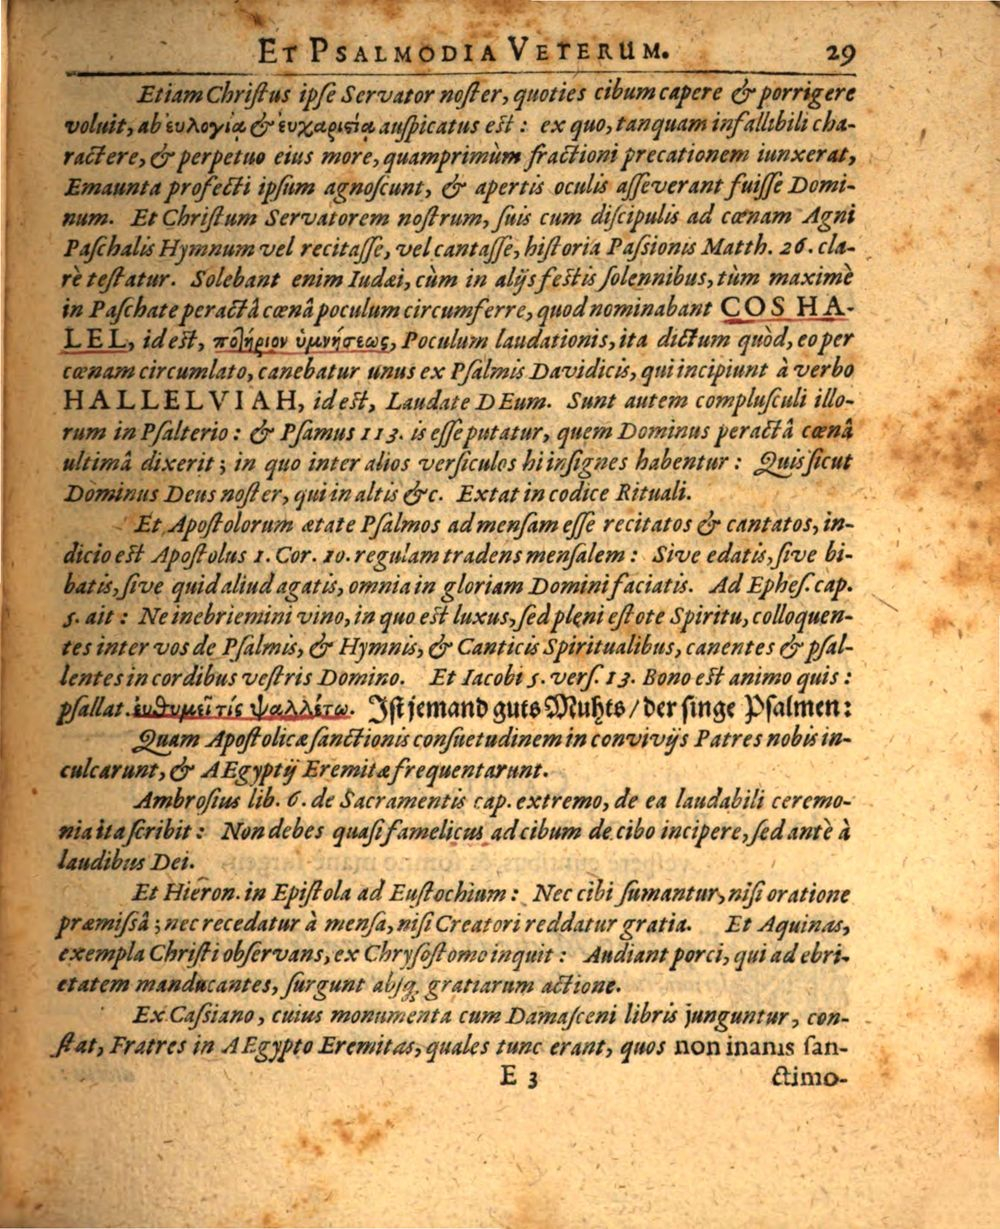 ET PSALMODIA VETERUM. 29
Etiam Chriſtus ipſe Servator noſter, quoties cibum capere & porrigere
voluit, ab ἐυλογίᾳ & ἐυχαριςίᾳ auſpicatus est: ex quo, tanquam infallibili cha-
ractere, & perpetuo eius more, quamprimùm fractioni precationem iunxerat,
Emaunta profecti ipſum agnoſcunt, & apertis oculis aſſeverant fuiſſe Domi-
num. Et Chriſtum Servatorem noſtrum, ſuis cum diſcipulis ad cœnam Agni
Paſchalis Hymnum vel recitaſſe, vel cantaſſe, hiſtoria Paſſionis Matth. 26. cla-
rè teſtatur. Solebant enim Iudæi, cùm in alijs feſtis ſolennibus, tùm maximè
in Paſchate peractâ cœnâ poculum circumferre, quod nominabant COS HA-
LEL, id est, ποτήριον ὑμνήσεως, Poculum laudationis, ita dictum quòd, eo per
cœnam circumlato, canebatur unus ex Pſalmis Davidicis, qui incipiunt à verbo
HALLELVIAH, id est, Laudate DEum. Sunt autem compluſculi illo-
rum in Pſalterio: & Pſamus 113. is eſſe putatur, quem Dominus peractâ cœnâ
ultimâ dixerit; in quo inter alios verſiculos hi inſignes habentur: Quis ſicut
Dominus Deus noſter, qui in altis &c. Extat in codice Rituali.
Et Apoſtolorum ætate Pſalmos ad menſam eſſe recitatos & cantatos, in-
dicio est Apoſtolus 1. Cor. 10. regulam tradens menſalem: Sive edatis, ſive bi-
batis, ſive quid aliud agatis, omnia in gloriam Domini faciatis. Ad Epheſ. cap.
5. ait: Ne inebriemini vino, in quo est luxus, ſed pleni eſtote Spiritu, colloquen-
tes inter vos de Pſalmis, & Hymnis, & Canticis Spiritualibus, canentes & pſal-
lentes in cordibus veſtris Domino. Et Iacobi 5. verſ. 13. Bono est animo quis:
pſallat. ἐυθυμεῖ τίς ψαλλέτω. Iſt jemand guts Muhts / der ſinge Pſalmen:
Quam Apoſtolicæ ſanctionis conſuetudinem in convivijs Patres nobis in-
culcarunt, & AEgyptij Eremitæ frequentarunt.
Ambroſius lib. 6. de Sacramentis cap. extremo, de ea laudabili ceremo-
nia ita ſcribit: Non debes quaſi famelicus ad cibum de cibo incipere, ſed antè à
laudibus Dei.
Et Hieron. in Epiſtola ad Euſtochium: Nec cibi ſumantur, niſi oratione
præmiſsâ; nec recedatur à menſa, niſi Creatori reddatur gratia. Et Aquinas,
exempla Chriſti obſervans, ex Chryſoſtomo inquit: Audiant porci, qui ad ebri-
etatem manducantes, ſurgunt abſq; gratiarum actione.
Ex Caſsiano, cuius monumenta cum Damaſceni libris junguntur, con-
ſtat, Fratres in AEgypto Eremitas, quales tunc erant, quos non inanis ſan-
E 3 ctimo-